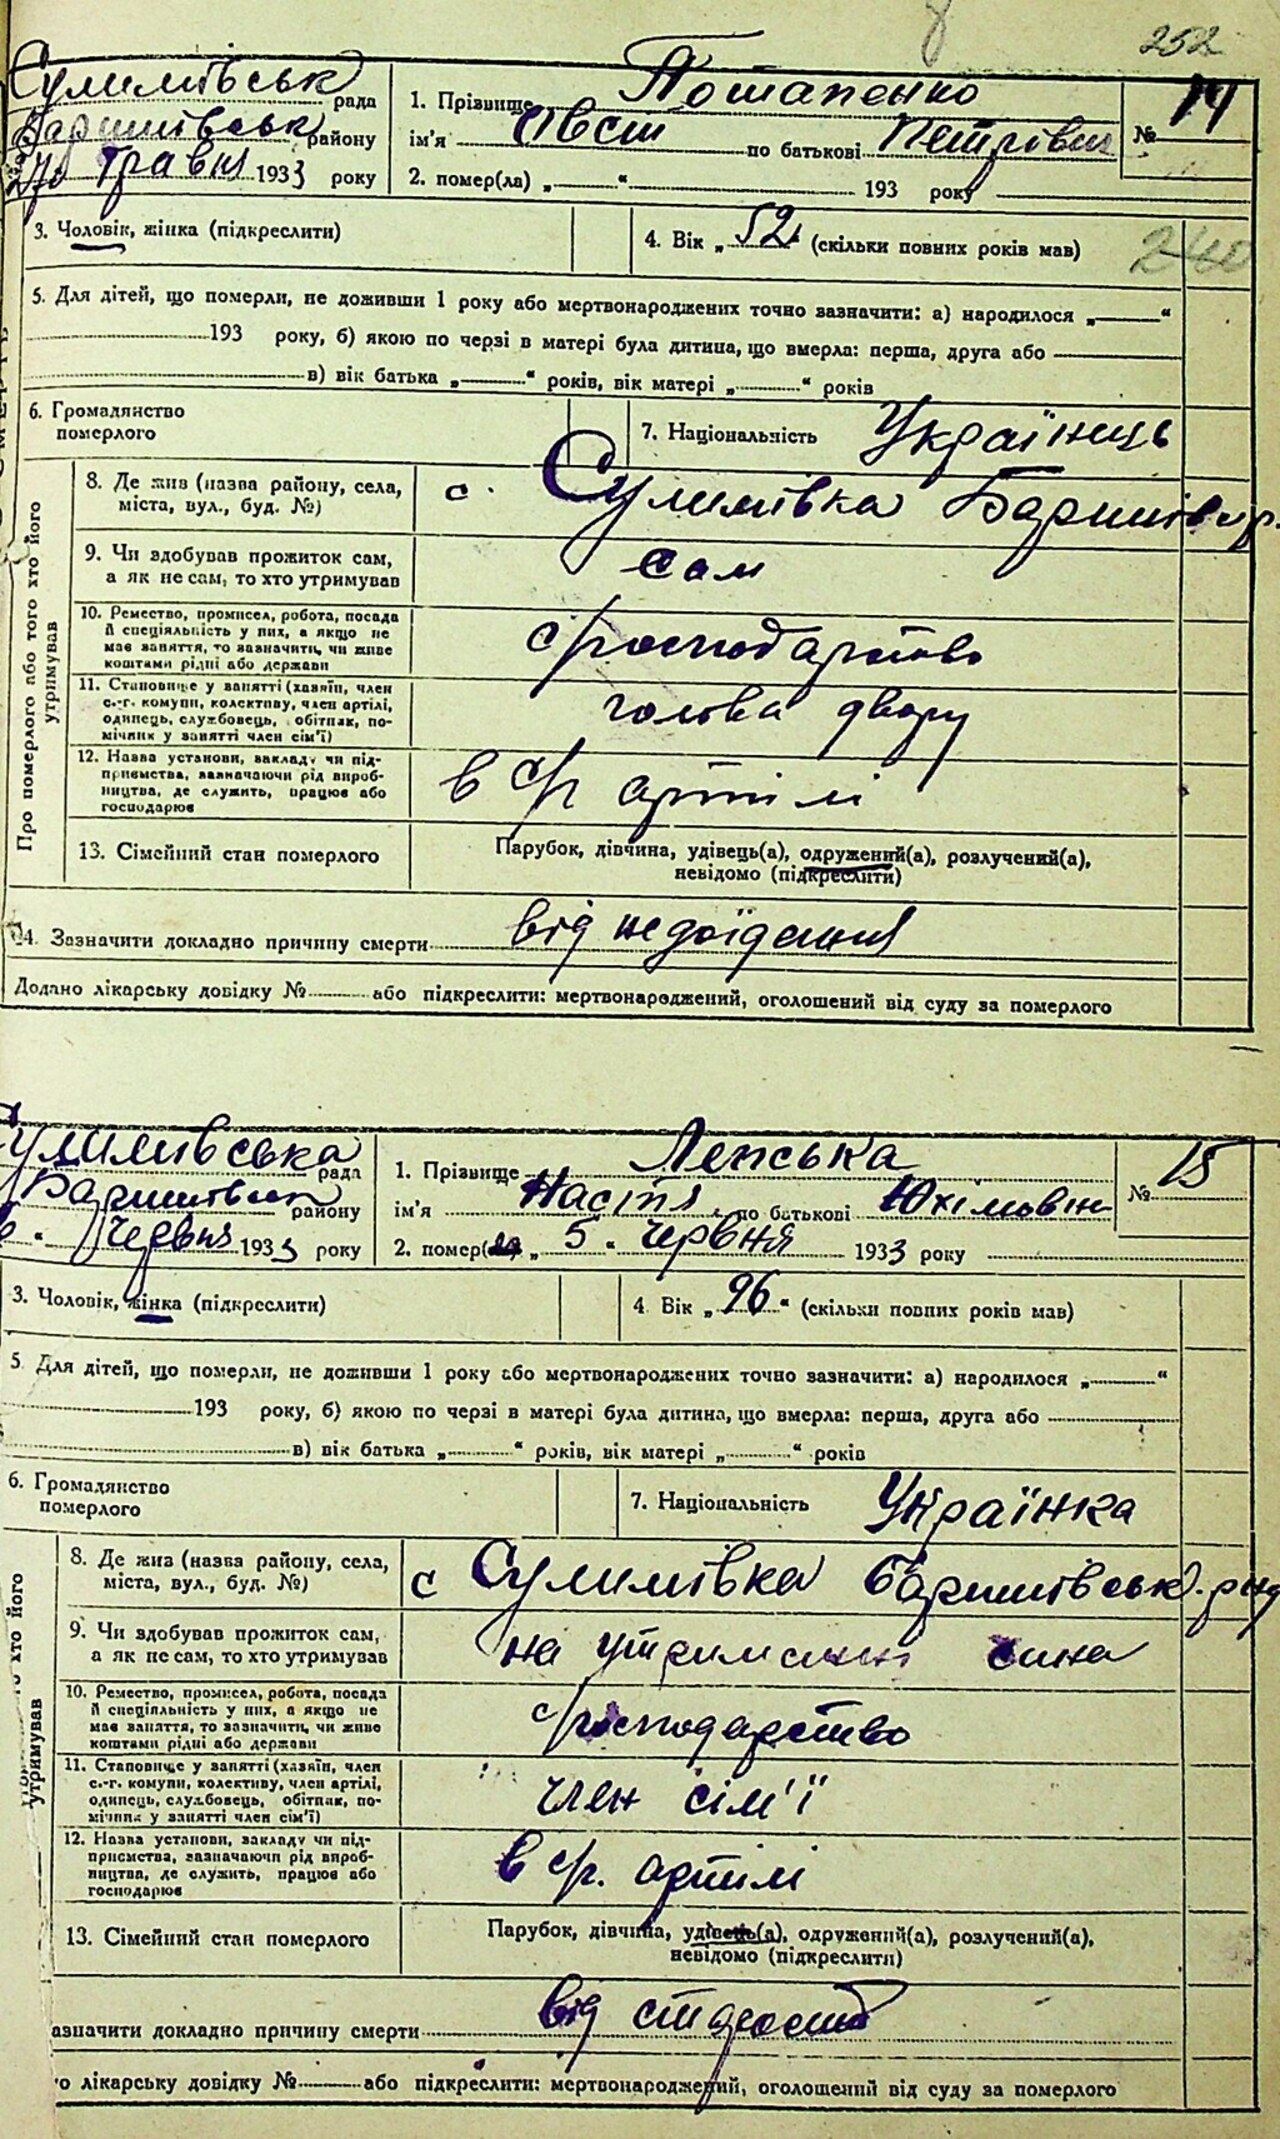 252
Сулимівськ рада
Баришівськ району
27го травня 1933 року
1. Прізвище Потапенко
ім'я Овсій по батькові Петрович
№ 14
2. помер(ла) „ “ 193 року
3. Чоловік, жінка (підкреслити)
4. Вік „52“ (скільки повних років мав)
240
5. Для дітей, що померли, не доживши 1 року або мертвонароджених точно зазначити: а) народилося „ “
193 року, б) якою по черзі в матері була дитина, що вмерла: перша, друга або
в) вік батька „ “ років, вік матері „ “ років
6. Громадянство
померлого
7. Національність Українець
Про померлого або того хто його
утримував
8. Де жив (назва району, села,
міста, вул., буд. №)
с. Сулимівка Баришів р.
9. Чи здобував прожиток сам,
а як не сам, то хто утримував
сам
10. Ремество, промисел, робота, посада
й спеціяльність у них, а якщо не
має заняття, то зазначити, чи живе
коштами рідні або держави
с/господарство
11. Становище у занятті (хазяїн, член
с.-г. комуни, колективу, член артілі,
одинець, службовець, робітник, по-
мічник у занятті член сім'ї)
голова двору
12. Назва установи, закладу чи під-
приємства, зазначаючи рід вироб-
ництва, де служить, працює або
господарює
в с/г артілі
13. Сімейний стан померлого
Парубок, дівчина, удівець(а), одружений(а), розлучений(а),
невідомо (підкреслити)
14. Зазначити докладно причину смерти від недоїдання
Додано лікарську довідку № або підкреслити: мертвонароджений, оголошений від суду за померлого
Сулимівська рада
Баришівськ району
“ Червня 1933 року
1. Прізвище Лепська
ім'я Настя по батькові Юхімовна
№ 15
2. помер(ла) „ 5 “ червня 1933 року
3. Чоловік, жінка (підкреслити)
4 Вік „96“ (скільки повних років мав)
5. Для дітей, що померли, не доживши 1 року або мертвонароджених точно зазначити: а) народилося „ “
193 року, б) якою по черзі в матері була дитина, що вмерла: перша, друга або
в) вік батька „ “ років, вік матері „ “ років
6. Громадянство
померлого
7. Національність Українка
хто його
утримував
8. Де жив (назва району, села,
міста, вул., буд. №)
с Сулимівка Баришівськ.
9. Чи здобував прожиток сам,
а як не сам, то хто утримував
на утриманні сина
10. Ремество, промисел, робота, посада
й спеціяльність у них, а якщо не
має заняття, то зазначити, чи живе
коштами рідні або держави
с/господарство
11. Становище у занятті (хазяїн, член
с.-г. комуни, колективу, член артілі,
одинець, службовець, обітник, по-
мічник у занятті член сім'ї)
член сім'ї
12. Назва установи, закладу чи під-
приємства, зазначаючи рід вироб-
ництва, де служить, працює або
господарює
в с/г. артілі
13. Сімейний стан померлого
Парубок, дівчина, удівець(а), одружений(а), розлучений(а),
невідомо (підкреслити)
азначити докладно причину смерти від старости
о лікарську довідку № або підкреслити: мертвонароджений, оголошений від суду за померлого